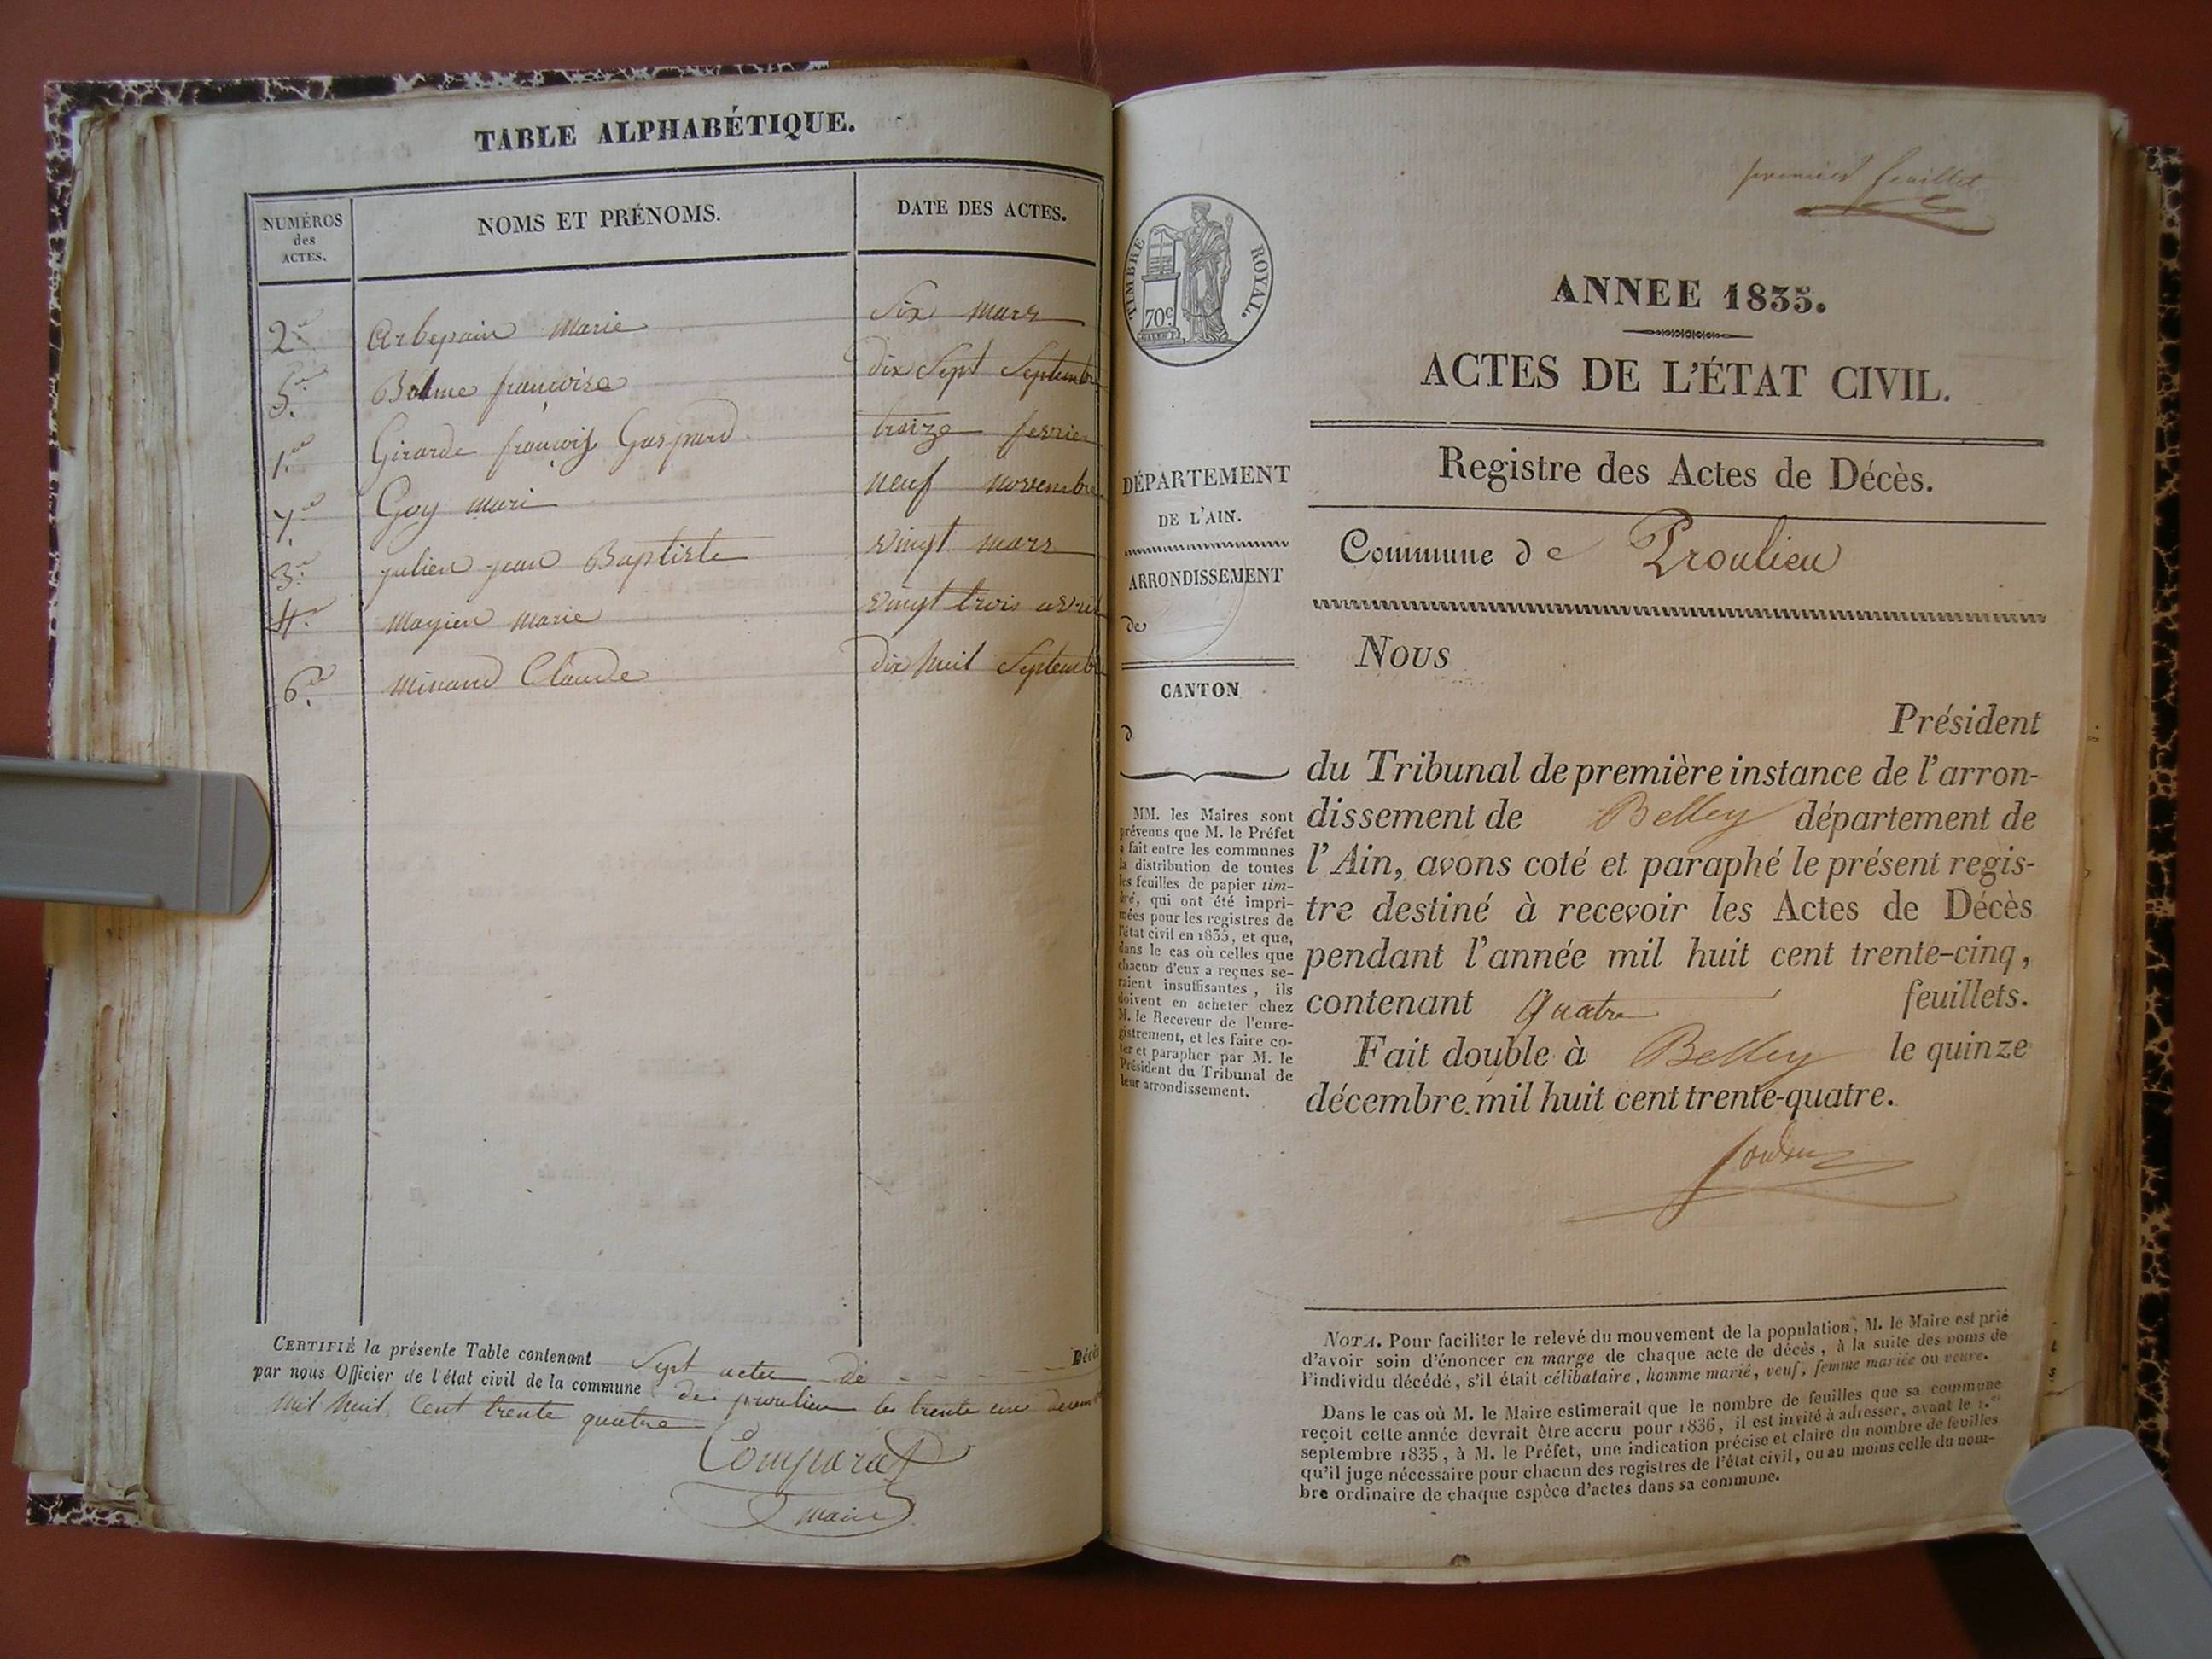 TABLE ALPHABÉTIQUE.
NUMÉROS des ACTES. NOMS ET PRÉNOMS. DATE DES ACTES.
2.e Arbepain Marie Six mars
5.e Bolme francoise dix Sept Septembre
1.er Girarde françois Gaspard treize fevrier
7.e Goy mari neuf novembre
3.e julien jean Baptiste vingt mars
4.e Mayien marie vingt trois avril
6.e Minand Claude dix huit Septembre
CERTIFIÉ la présente Table contenant Sept actes de Décès
par nous Officier de l'état civil de la commune de proulieu le trente un decembre
mil huit Cent trente quatre
Comparat
maire
premier feuillet
TIMBRE ROYAL.
70c
ANNEE 1835.
ACTES DE L'ÉTAT CIVIL.
Registre des Actes de Décès.
Commune de Proulieu
DÉPARTEMENT
DE L'AIN.
ARRONDISSEMENT
de
CANTON
d
MM. les Maires sont
prévenus que M. le Préfet
a fait entre les communes
la distribution de toutes
les feuilles de papier tim-
bré, qui ont été impri-
mées pour les registres de
l'état civil en 1835, et que,
dans le cas où celles que
chacun d'eux a reçues se-
raient insuffisantes, ils
doivent en acheter chez
M. le Receveur de l'enre-
gistrement, et les faire co-
ter et parapher par M. le
Président du Tribunal de
leur arrondissement.
Nous
Président
du Tribunal de première instance de l'arron-
dissement de Belley département de
l'Ain, avons coté et paraphé le présent regis-
tre destiné à recevoir les Actes de Décès
pendant l'année mil huit cent trente-cinq,
contenant Quatre feuillets.
Fait double à Belley le quinze
décembre mil huit cent trente-quatre.
NOTA. Pour faciliter le relevé du mouvement de la population, M. le Maire est prié
d'avoir soin d'énoncer en marge de chaque acte de décès, à la suite des noms de
l'individu décédé, s'il était célibataire, homme marié, veuf, femme mariée ou veuve.
Dans le cas où M. le Maire estimerait que le nombre de feuilles que sa commune
reçoit cette année devrait être accru pour 1836, il est invité à adresser, avant le 1.er
septembre 1835, à M. le Préfet, une indication précise et claire du nombre de feuilles
qu'il juge nécessaire pour chacun des registres de l'état civil, ou au moins celle du nom-
bre ordinaire de chaque espèce d'actes dans sa commune.